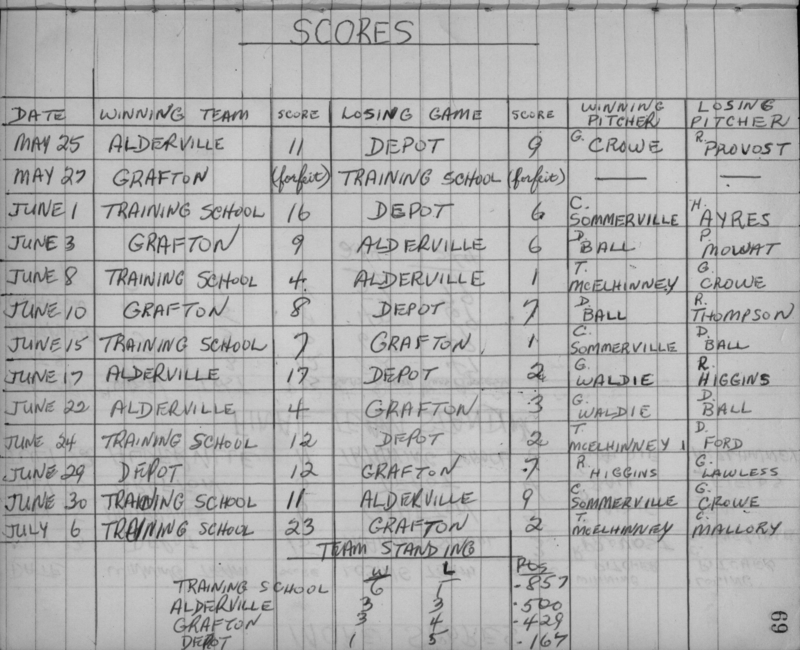 SCORES
DATE WINNING TEAM SCORE LOSING GAME SCORE WINNING PITCHER LOSING PITCHER
MAY 25 ALDERVILLE 11 DEPOT 9 G. CROWE R. PROVOST
MAY 27 GRAFTON (forfeit) TRAINING SCHOOL (forfeit) — —
JUNE 1 TRAINING SCHOOL 16 DEPOT 6 C. SOMMERVILLE H. AYRES
JUNE 3 GRAFTON 9 ALDERVILLE 6 D. BALL P. MOWAT
JUNE 8 TRAINING SCHOOL 4 ALDERVILLE 1 T. MCELHINNEY G. CROWE
JUNE 10 GRAFTON 8 DEPOT 7 D. BALL R. THOMPSON
JUNE 15 TRAINING SCHOOL 7 GRAFTON 1 C. SOMMERVILLE D. BALL
JUNE 17 ALDERVILLE 17 DEPOT 2 G. WALDIE R. HIGGINS
JUNE 22 ALDERVILLE 4 GRAFTON 3 G. WALDIE D. BALL
JUNE 24 TRAINING SCHOOL 12 DEPOT 2 T. MCELHINNEY D. FORD
JUNE 29 DEPOT 12 GRAFTON 7 R. HIGGINS G. LAWLESS
JUNE 30 TRAINING SCHOOL 11 ALDERVILLE 9 C. SOMMERVILLE G. CROWE
JULY 6 TRAINING SCHOOL 23 GRAFTON 2 T. MCELHINNEY C. MALLORY
TEAM STANDING
W L Pos
TRAINING SCHOOL 6 1 .857
ALDERVILLE 3 3 .500
GRAFTON 3 4 .429
DEPOT 1 5 .167
69